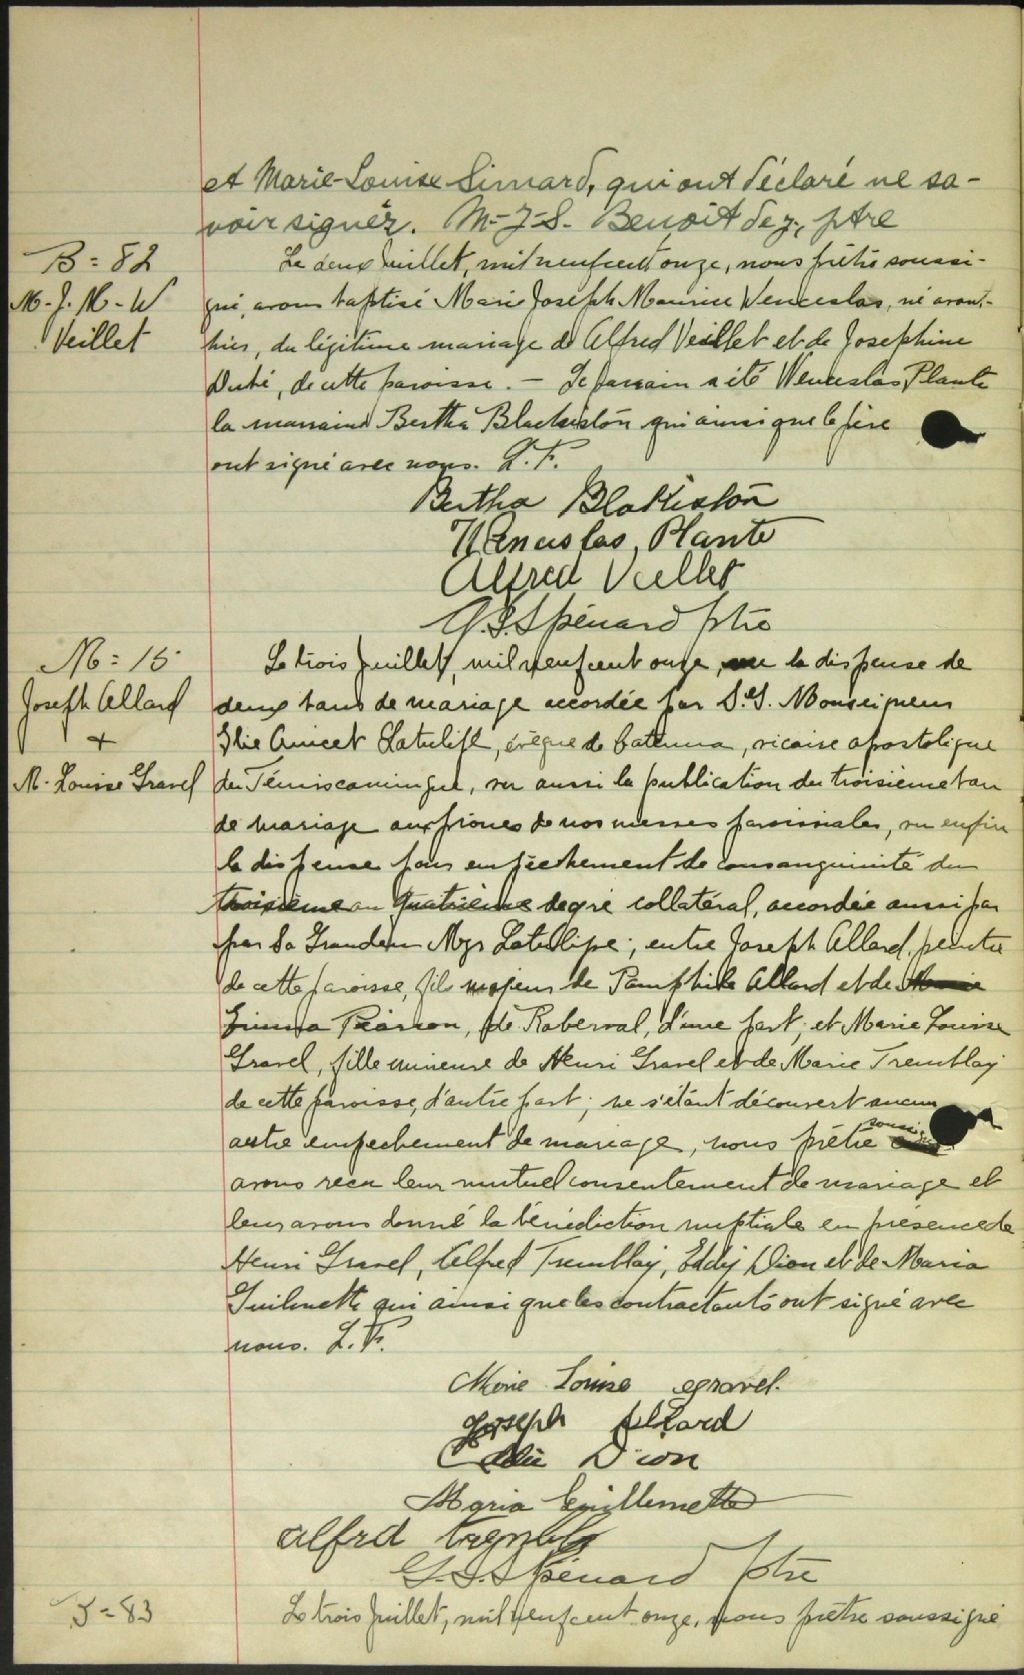 et Marie-Louise Simard, qui ont déclaré ne sa-
voir signer. M-J-S. Benoit dez, ptre
B = 82
M-J. M-W
Veillet
Le deux Juillet, mil neuf cent onze, nous prêtre soussi-
gné, avons baptisé Marie Joseph Maurice Wenceslas, né avant-
hier, du légitime mariage de Alfred Veillet et de Josephine
Dubé, de cette paroisse. - Le parrain a été Wenceslas Plante
la marraine Bertha Blackiston qui ainsi que le père
ont signé avec nous. L. F.
Bertha Blakiston
Wenceslas Plante
Alfred Veillet
G.S. Spénard ptre
M = 15
Joseph Allard
+
M. Louise Gravel
Le trois Juillet, mil neuf cent onze, vu la dispense de
deux bans de mariage accordée par S.G. Monseigneur
Elie Anicet Latulipe, évêque de Catenna, vicaire apostolique
du Témiscamingue, vu aussi la publication du troisième ban
de mariage aux prônes de nos messes paroissiales, vu enfin
la dispense pour empêchement de consanguinité du
troisième au quatrième degré collatéral, accordée aussi par
par Sa Grandeur Mgr Latulipe; entre Joseph Allard, peintre
de cette paroisse, fils majeur de Pamphile Allard et de Marie
Emma Pearson, de Roberval, d'une part; et Marie Louise
Gravel, fille mineure de Henri Gravel et de Marie Tremblay
de cette paroisse, d'autre part; ne s'étant découvert aucun
autre empechement de mariage, nous prêtre soussigné
avons reçu leur mutuel consentement de mariage et
leur avons donné la bénédiction nuptiale en présence de
Henri Gravel, Alfred Tremblay, Eddy Dion et de Maria
Guilmette qui ainsi que les contractants ont signé avec
nous. L. F.
Marie Louise gravel.
Joseph Allard
Dion
Maria Guillemette
alfred tremblay
G.S. Spénard ptre
= 83
Le trois Juillet, mil neuf cent onze, nous prêtre soussigné